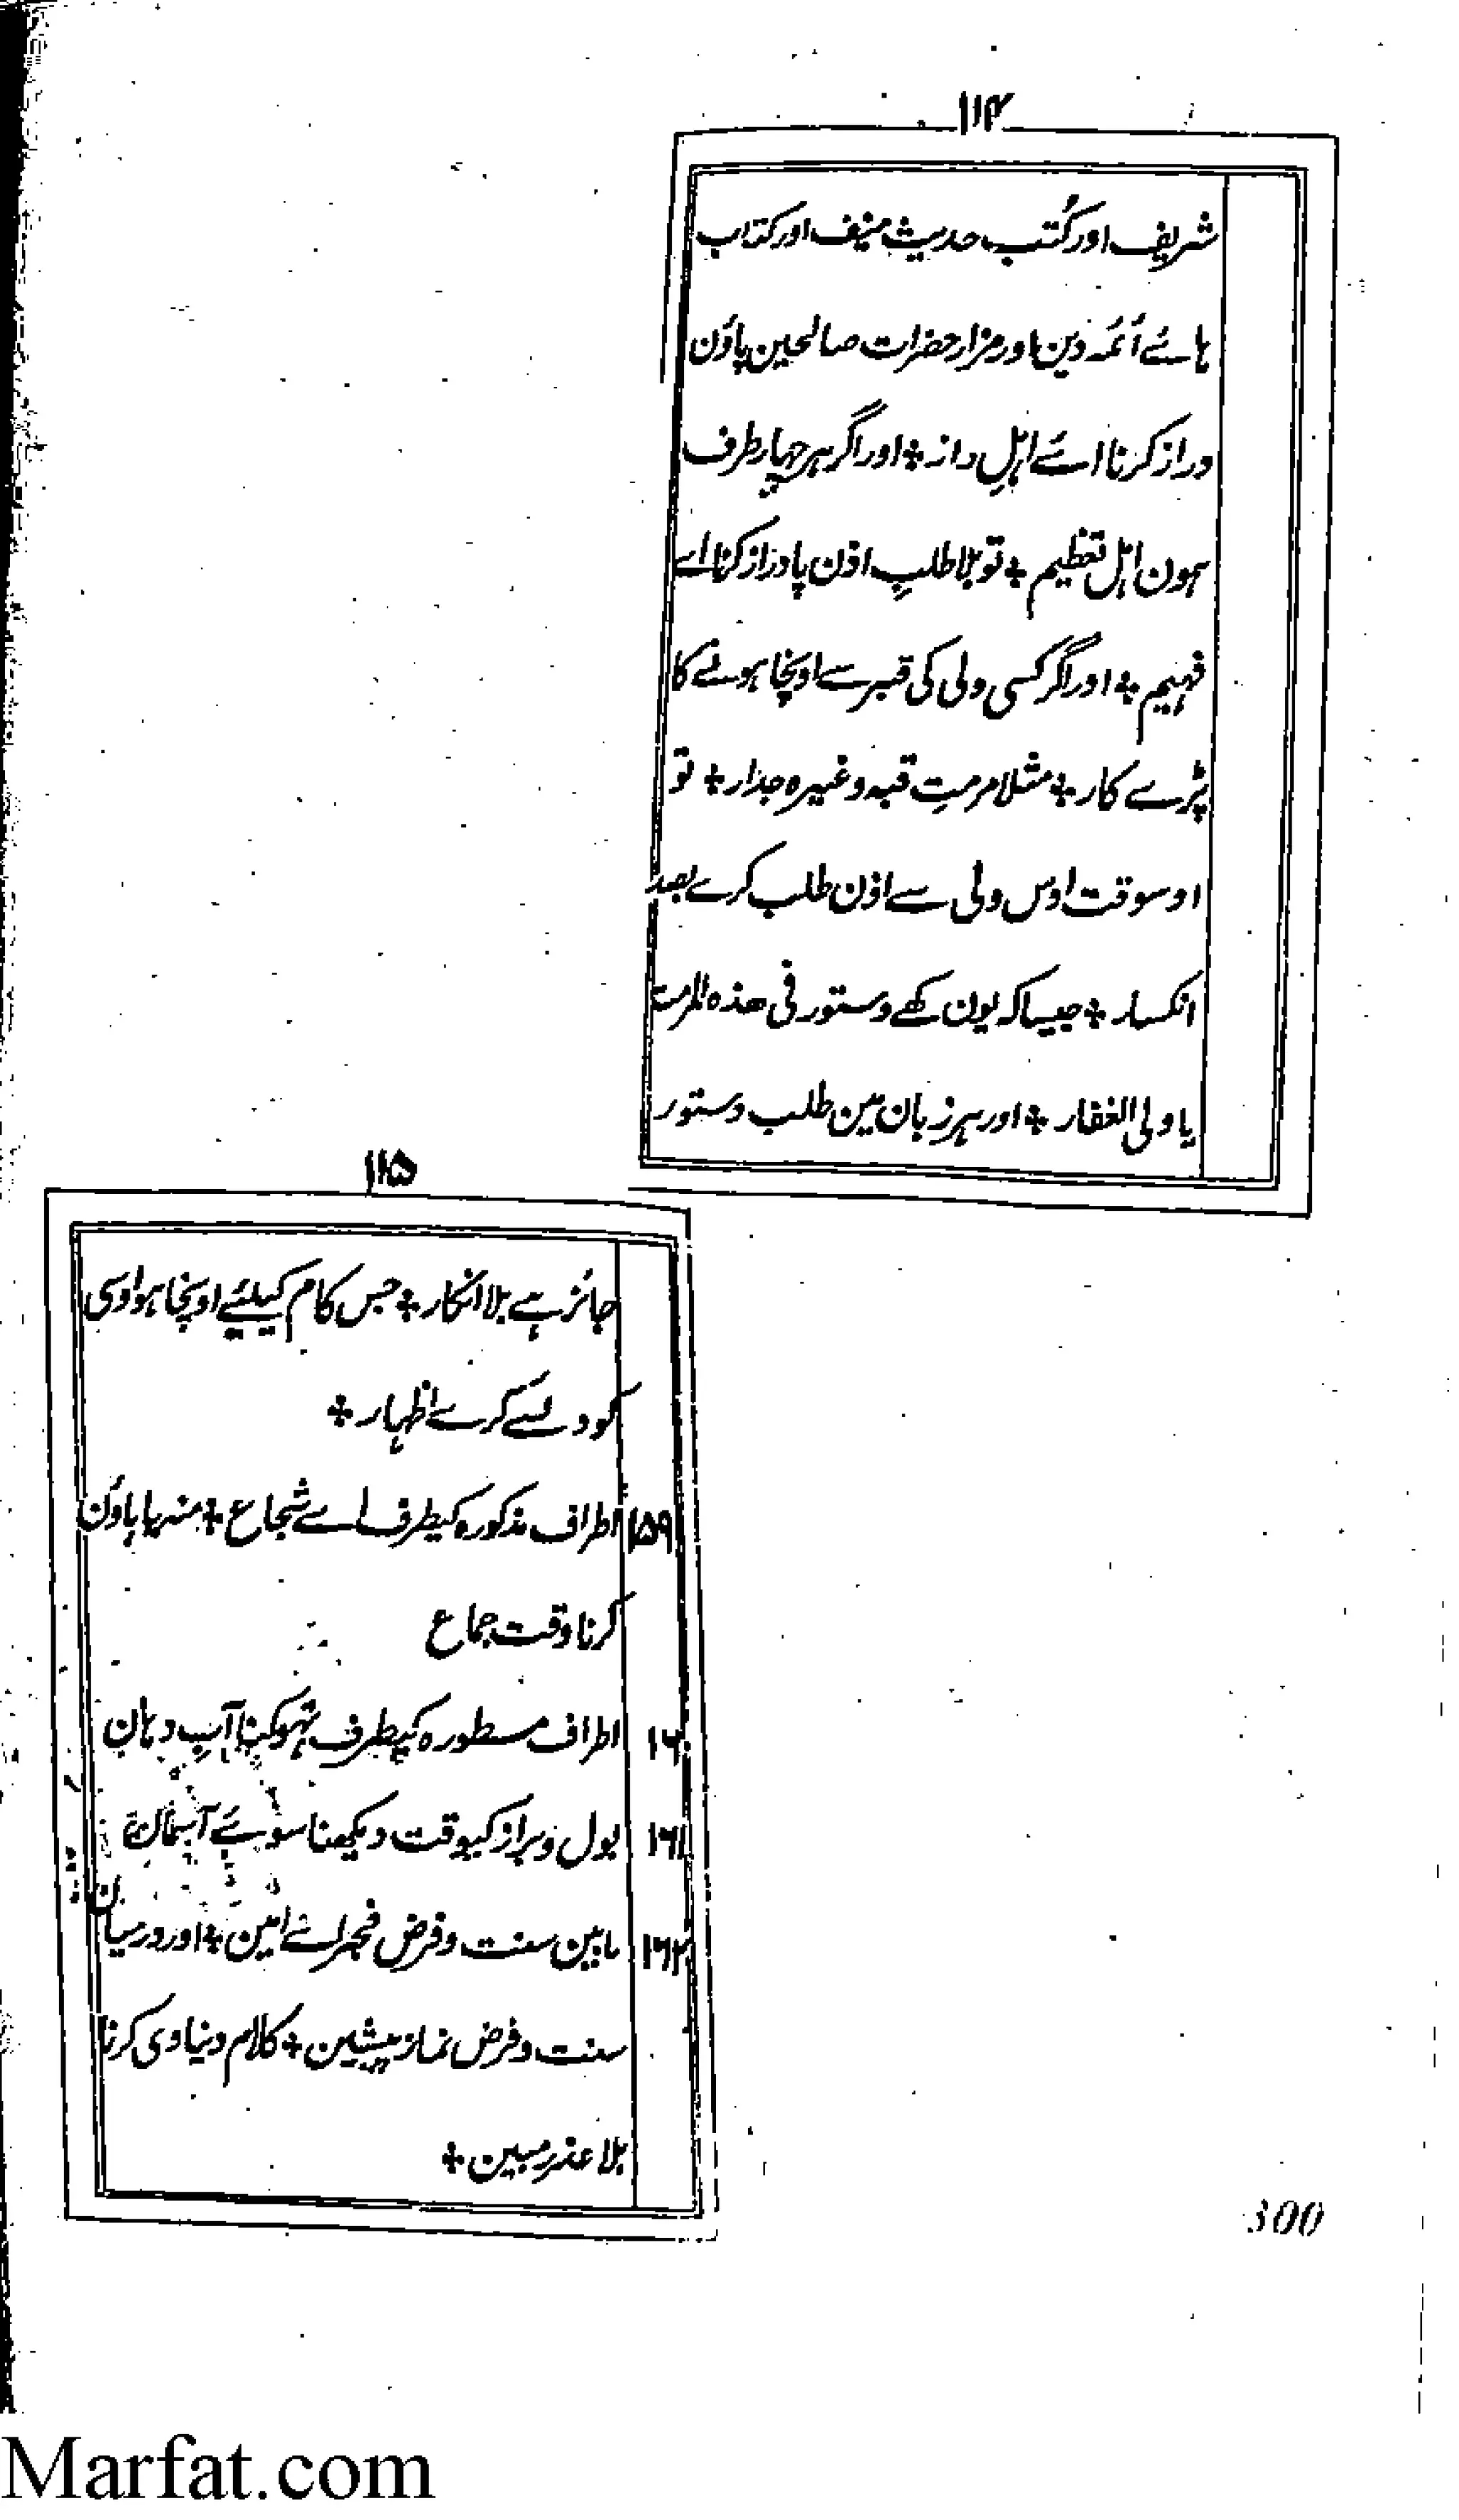 ۱۱۴
شریف اور کُتب حدیث منیف اور کتاب
ہائے أئمہ دین اور مزار حضرات صالحین پاؤن
دراز کرنا اے اہلِ راز ⁜ اور اگر ہر چہار طرف
ہون اہل تعظیم ⁜ تو بلا طلبِ اذن پا دراز کرنا اے
فہیم ⁜ اور اگر کسی ولی کی قبر سے اونچا ہونے کا
پڑے کار ⁜ مثلا مرمتِ قبہ وغیرہ جدار ⁜ تو
اوسوقت اوس ولی سے اذن طلب کرے بعد
انکسار ⁜ جیسا کہ یون کہے دستور فی ھذہ المرمت
یا ولی الغفار ⁜ اور ہر زبان مین طلب دستور
۱۱۵
جائز ہے بلا انکار ⁜ جس کام کیلئے اونچا ہو اوسی
کو دلسے کرے اظہار ⁜
۱۵۹ اطراف مذکورہ کیطرف اے شجاع ⁜ منہ یا پاؤن
کرنا وقت جماع
۱۶۰ اطراف مسطورہ کیطرف تہوکنا آبِ دہان
۱۶۱ بول و براز کیوقت دیکھنا سوئے آسمان
۱۶۲ مابین سنت و فرض فجر اے امین ⁜ اور درمیان
سنت و فرض نماز پیشین ⁜ کلام دنیاوی کرنا
بلا عذر مبین ⁜
300
Marfat.com